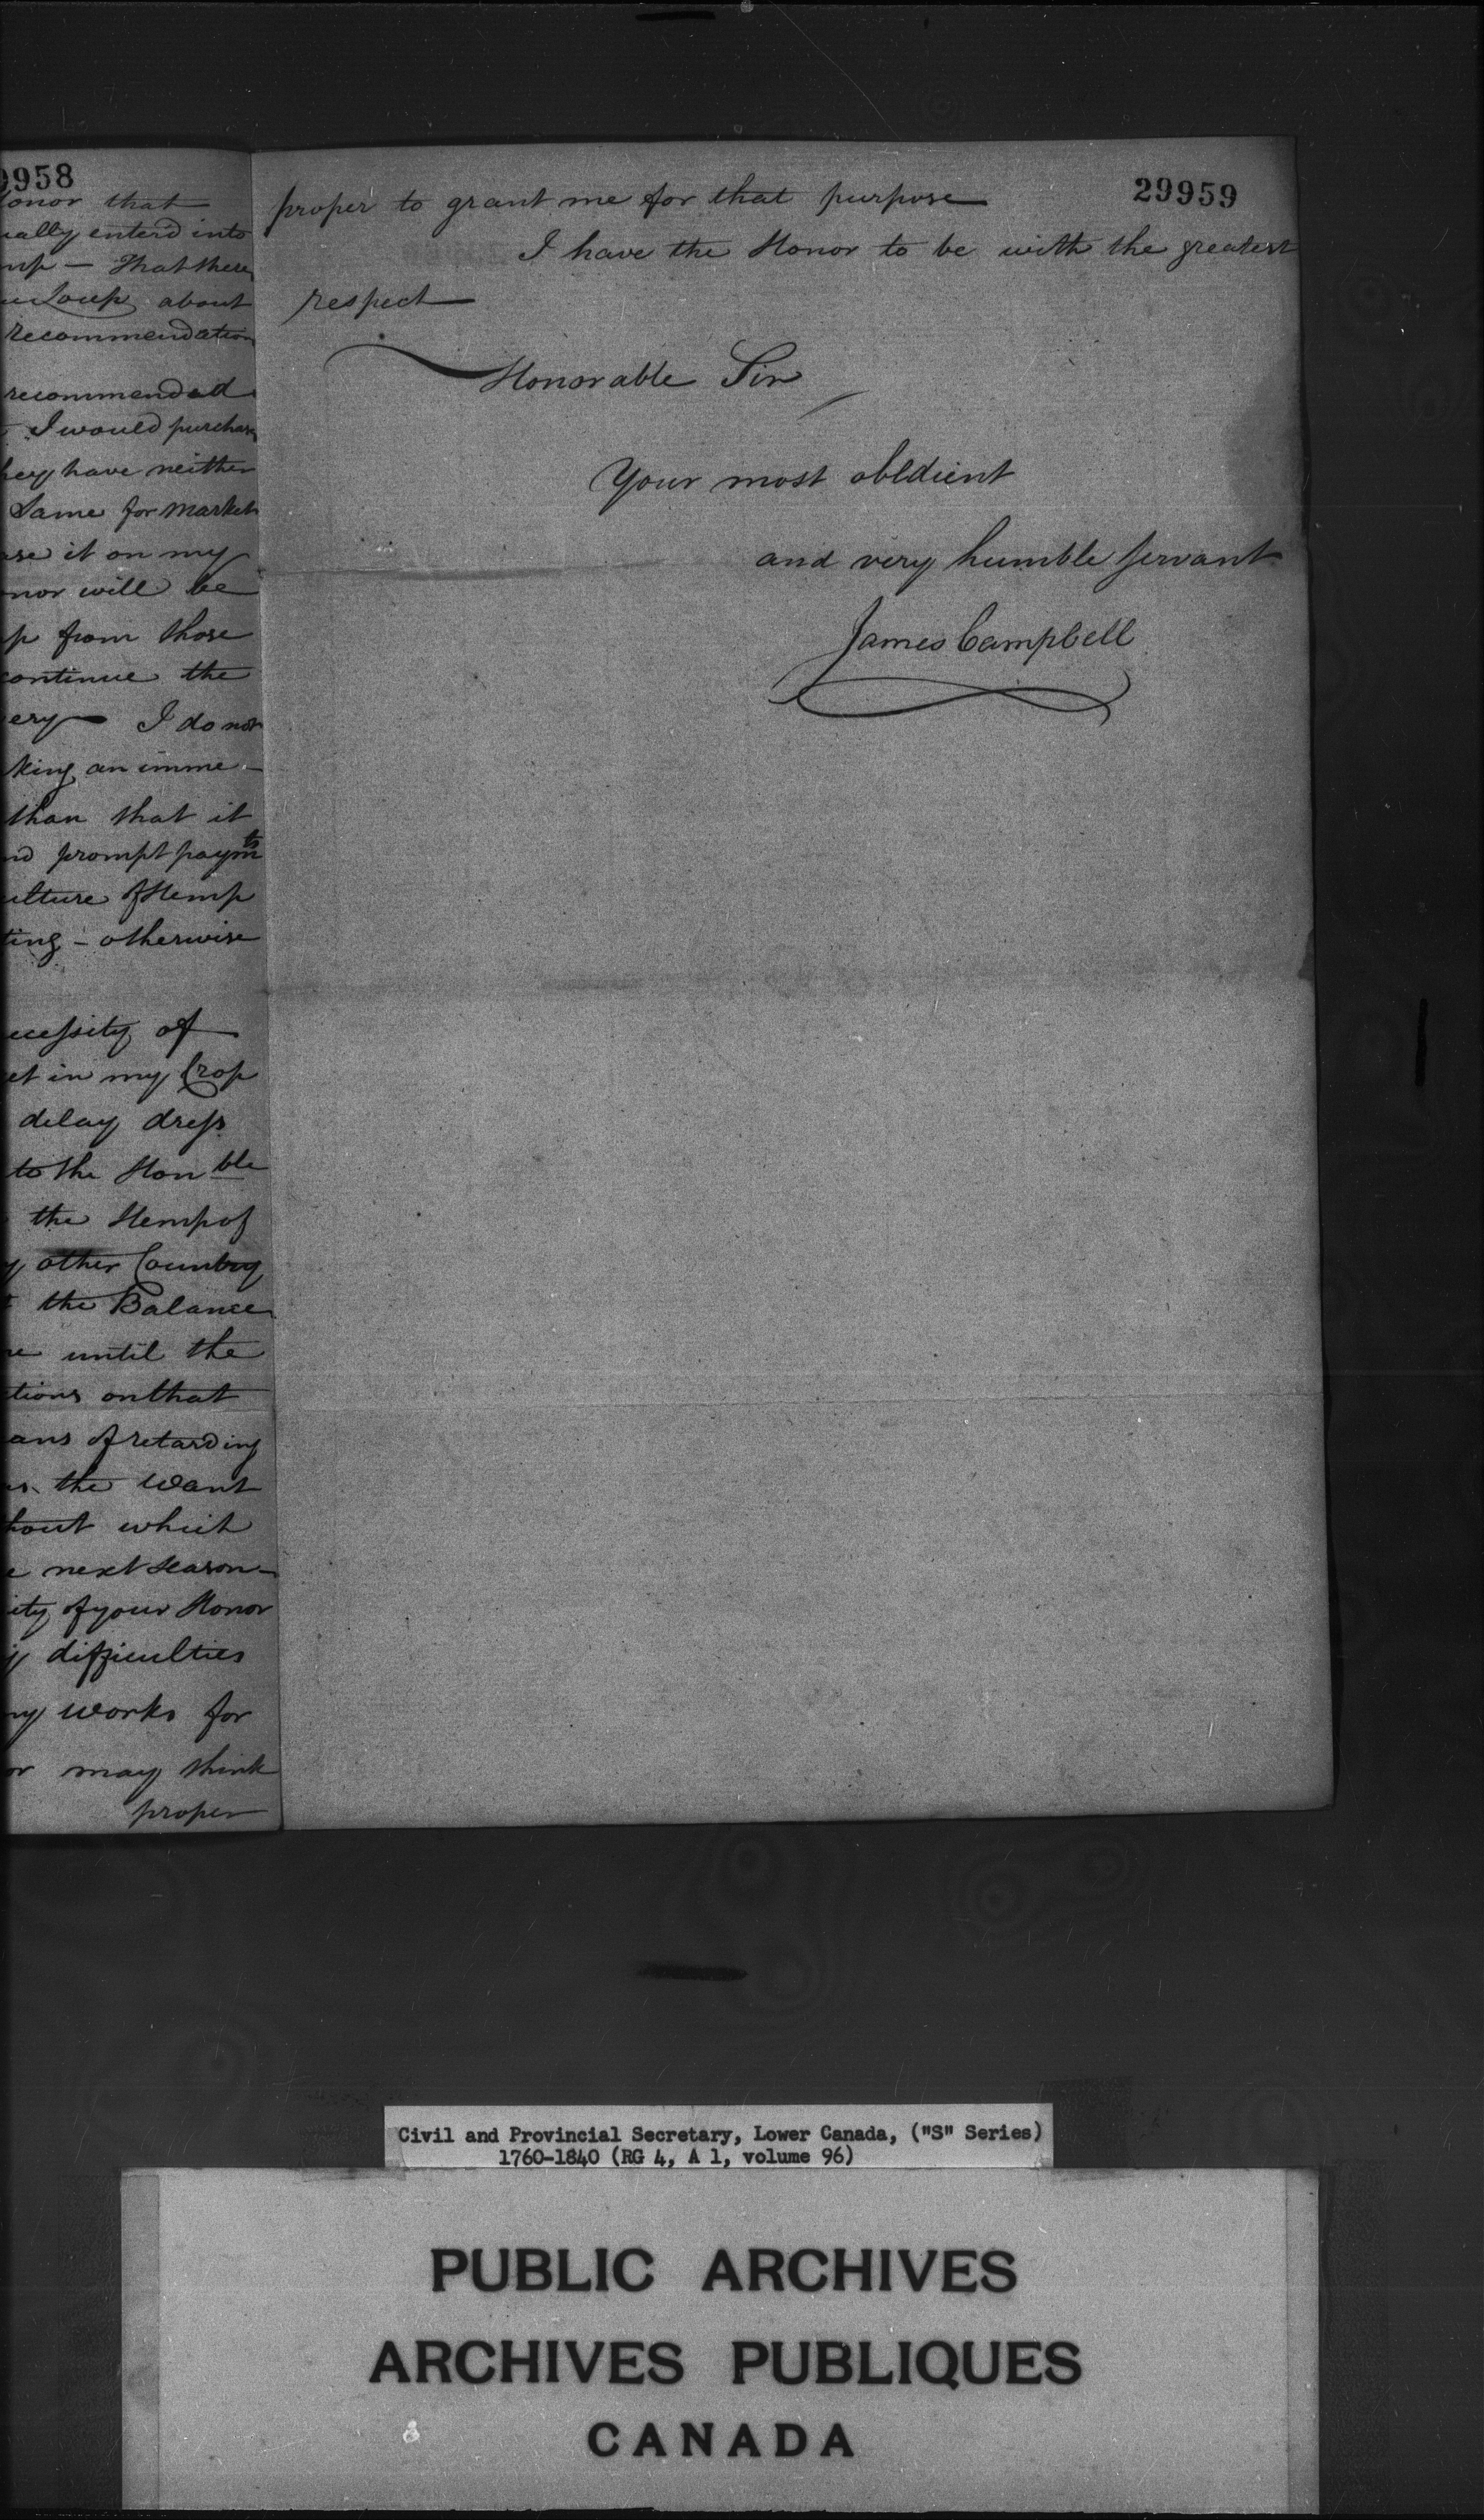 9958
onor that
ually enterd into
mp — That there
u Loup about
recommendation
recommended
I would purchase
hey have neither
Same for market
ase it on my
nor will be
p from those
continue the
ery — I do not
king an imme-
than that it
nd prompt paymts
ulture of Hemp
ting - otherwise
ecessity of
et in my Crop
delay dress
to the Honble
the Hemp of
y other Country
t the Balance
re until the
tions on that
ans of retarding
the want
hout which
e next season -
ity of your Honor
difficulties
my works for
or may think
proper
29959
proper to grant me for that purpose
I have the Honor to be with the greatest
respect
Honorable Sir
Your most obedient
and very humble servant
James Campbell
Civil and Provincial Secretary, Lower Canada, ("S" Series)
1760-1840 (RG 4, A 1, volume 96)
PUBLIC ARCHIVES
ARCHIVES PUBLIQUES
CANADA